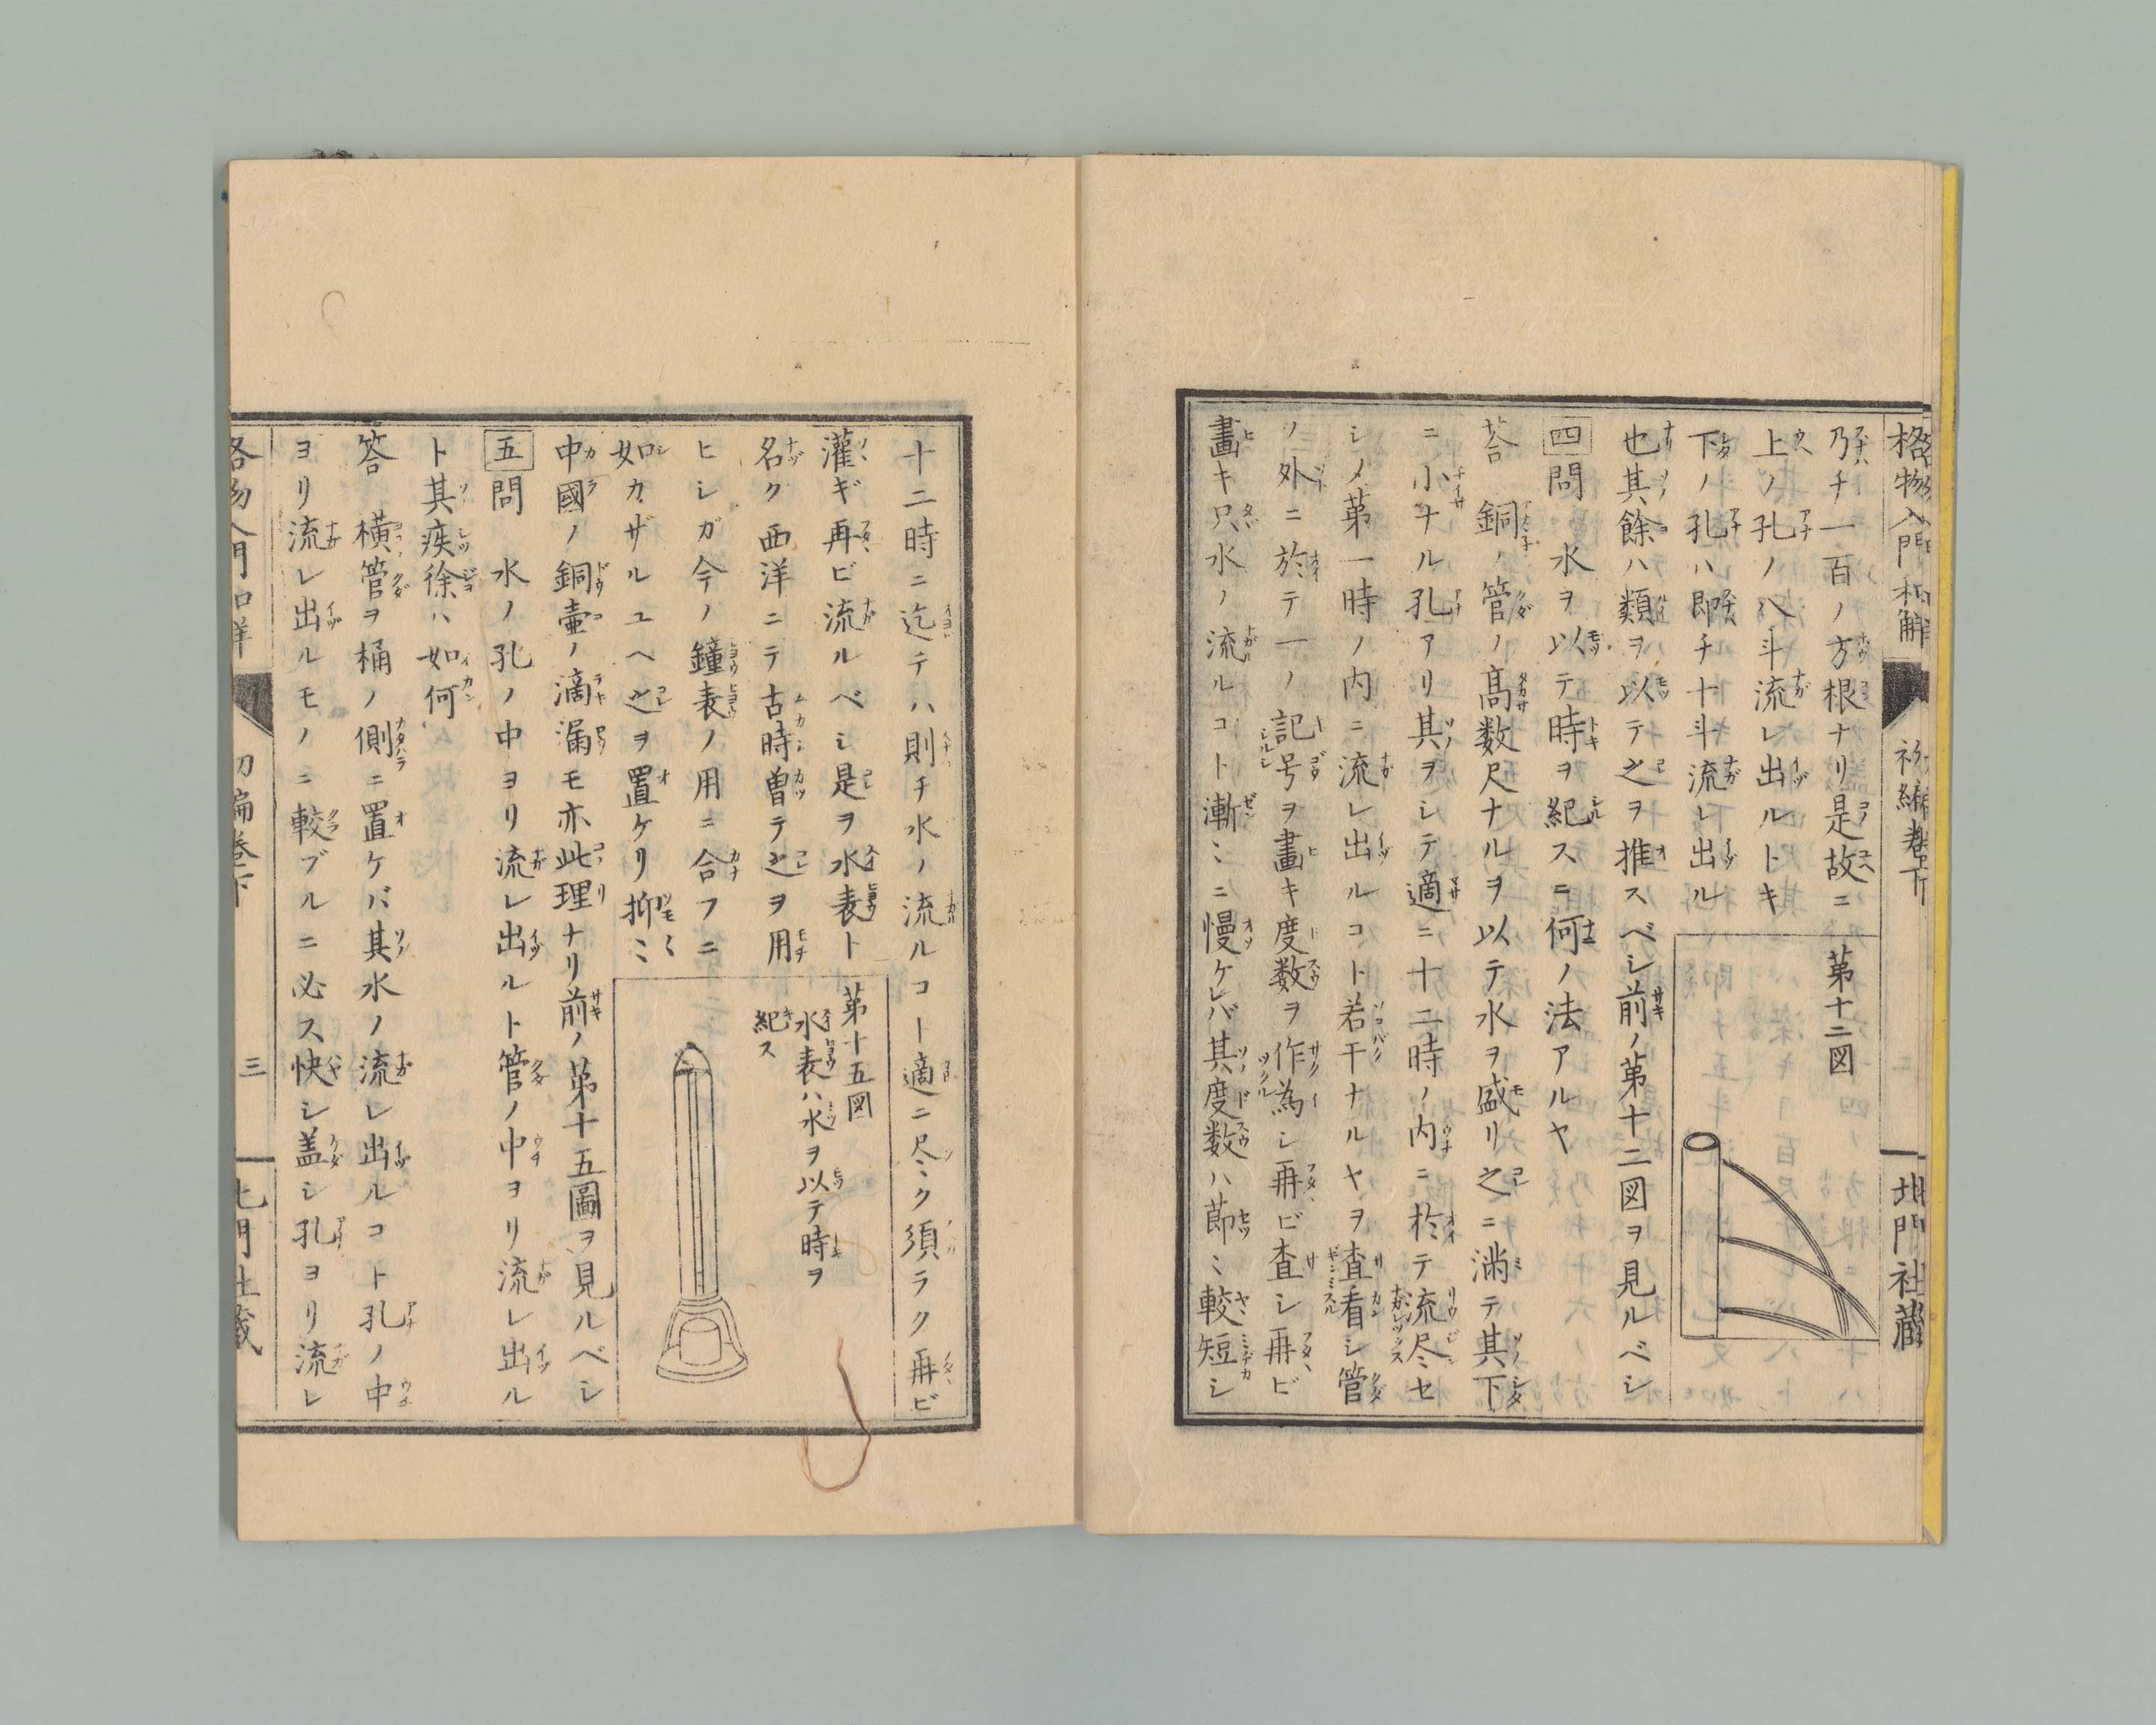 格物入門和解　初編巻下　二　北門社蔵
乃チ一百ノ方根ナリ是故ニ
上ノ孔ノ八斗流レ出ルトキ
下ノ孔ハ即チ十斗流レ出ル
第十二図
也其餘ハ類ヲ以テ之ヲ推スベシ前ノ第十二図ヲ見ルベシ
四問　水ヲ以テ時ヲ紀スニ何ノ法アルヤ
荅　銅ノ管ノ髙数尺ナルヲ以テ水ヲ盛リ之ニ満テ其下
ニ小ナル孔アリ其ヲシテ適ニ十二時ノ内ニ於テ流尽セ
シメ第一時ノ内ニ流レ出ルコト若干ナルヤヲ査看シ管
ノ外ニ於テ一ノ記号ヲ畫キ度数ヲ作為シ再ビ査シ再ビ
畫キ只水ノ流ルコト漸ミニ慢ケレバ其度数ハ節ミ較短シ
十二時ニ迄テハ則チ水ノ流ルコー適ニ尽ク須ラク再ビ
灌ギ再ビ流ルベシ是ヲ水表ト
名ク西洋ニテ古時曽テ之ヲ用
ヒシガ今ノ鐘表ノ用ニ合フニ
如カザルユヘ之ヲ置ケリ抑ミ
第十五図
水表ハ水ヲ以テ時ヲ
紀ス
中國ノ銅壷ノ滴漏モ亦此理ナリ前ノ第十五圖ヲ見ルベシ
五問　水ノ孔ノ中ヨリ流レ出ルト管ノ中ヨリ流レ出ル
ト其疾徐ハ如何
答　横管ヲ桶ノ側ニ置ケバ其水ノ流レ出ルコト孔ノ中
ヨリ流レ出ルモノニ較ブルニ必ス快シ盖シ孔ヨリ流レ
格物入門和解　初編巻下　三　北門社蔵